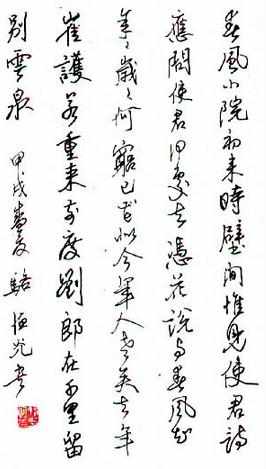 春風小院初来時壁间惟見使君詩
應問使君何處去憑花說与春風知
年々歲々何窮已花似今年人老矣去年
崔護若重来前度劉郎在千里留
别雲泉 甲戌 駱恒光书